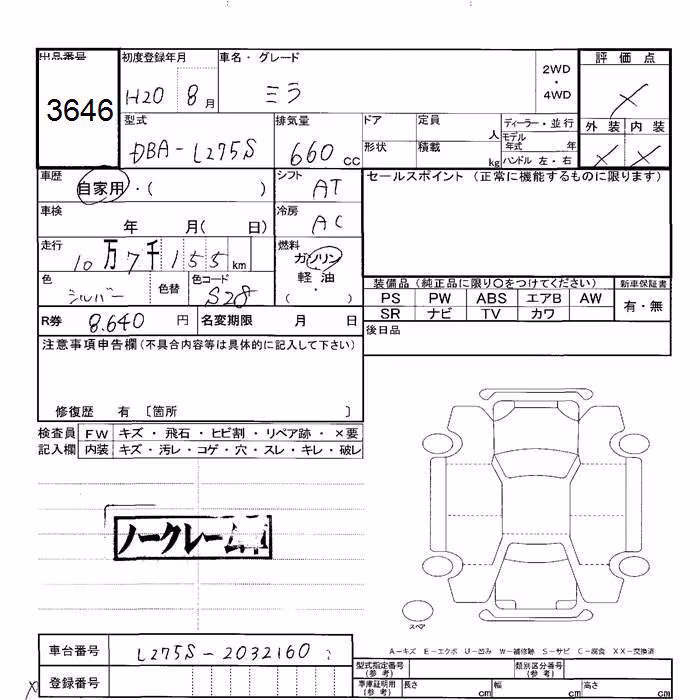 出品番号 初度登録年月 車名・グレード 2WD・4WD 評価点
3646 H20 8月 ミラ ×
外装 内装
× ×
型式 排気量 ドア 定員 人 ディーラー・並行
DBA-L275S 660cc 形状 積載 kg モデル年式 年
ハンドル 左・右
車歴 自家用・( ) シフト AT セールスポイント (正常に機能するものに限ります)
車検 年 月( 日) 冷房 AC
走行 10万7千155km 燃料 ガソリン
軽油
・
( )
色 シルバー 色替 色コード S28
装備品 (純正品に限り〇をつけてください) 新車保証書
PS PW ABS エアB AW 有・無
SR ナビ TV カワ
R券 8.640円 名変期限 月 日 後日品
注意事項申告欄 (不具合内容等は具体的に記入して下さい)
修復歴 有 〔箇所 〕
検査員 FW キズ・飛石・ヒビ割・リペア跡・×要
記入欄 内装 キズ・汚レ・コゲ・穴・スレ・キレ・破レ
ノークレーム
スペア
A-キズ E-エクボ U-凹み W-補修跡 S-サビ C-腐食 XX-交換済
車台番号 L275S-2032160
登録番号
型式指定番号(参考) 類別区分番号(参考)
車庫証明用(参考) 長さ cm 幅 cm 高さ cm